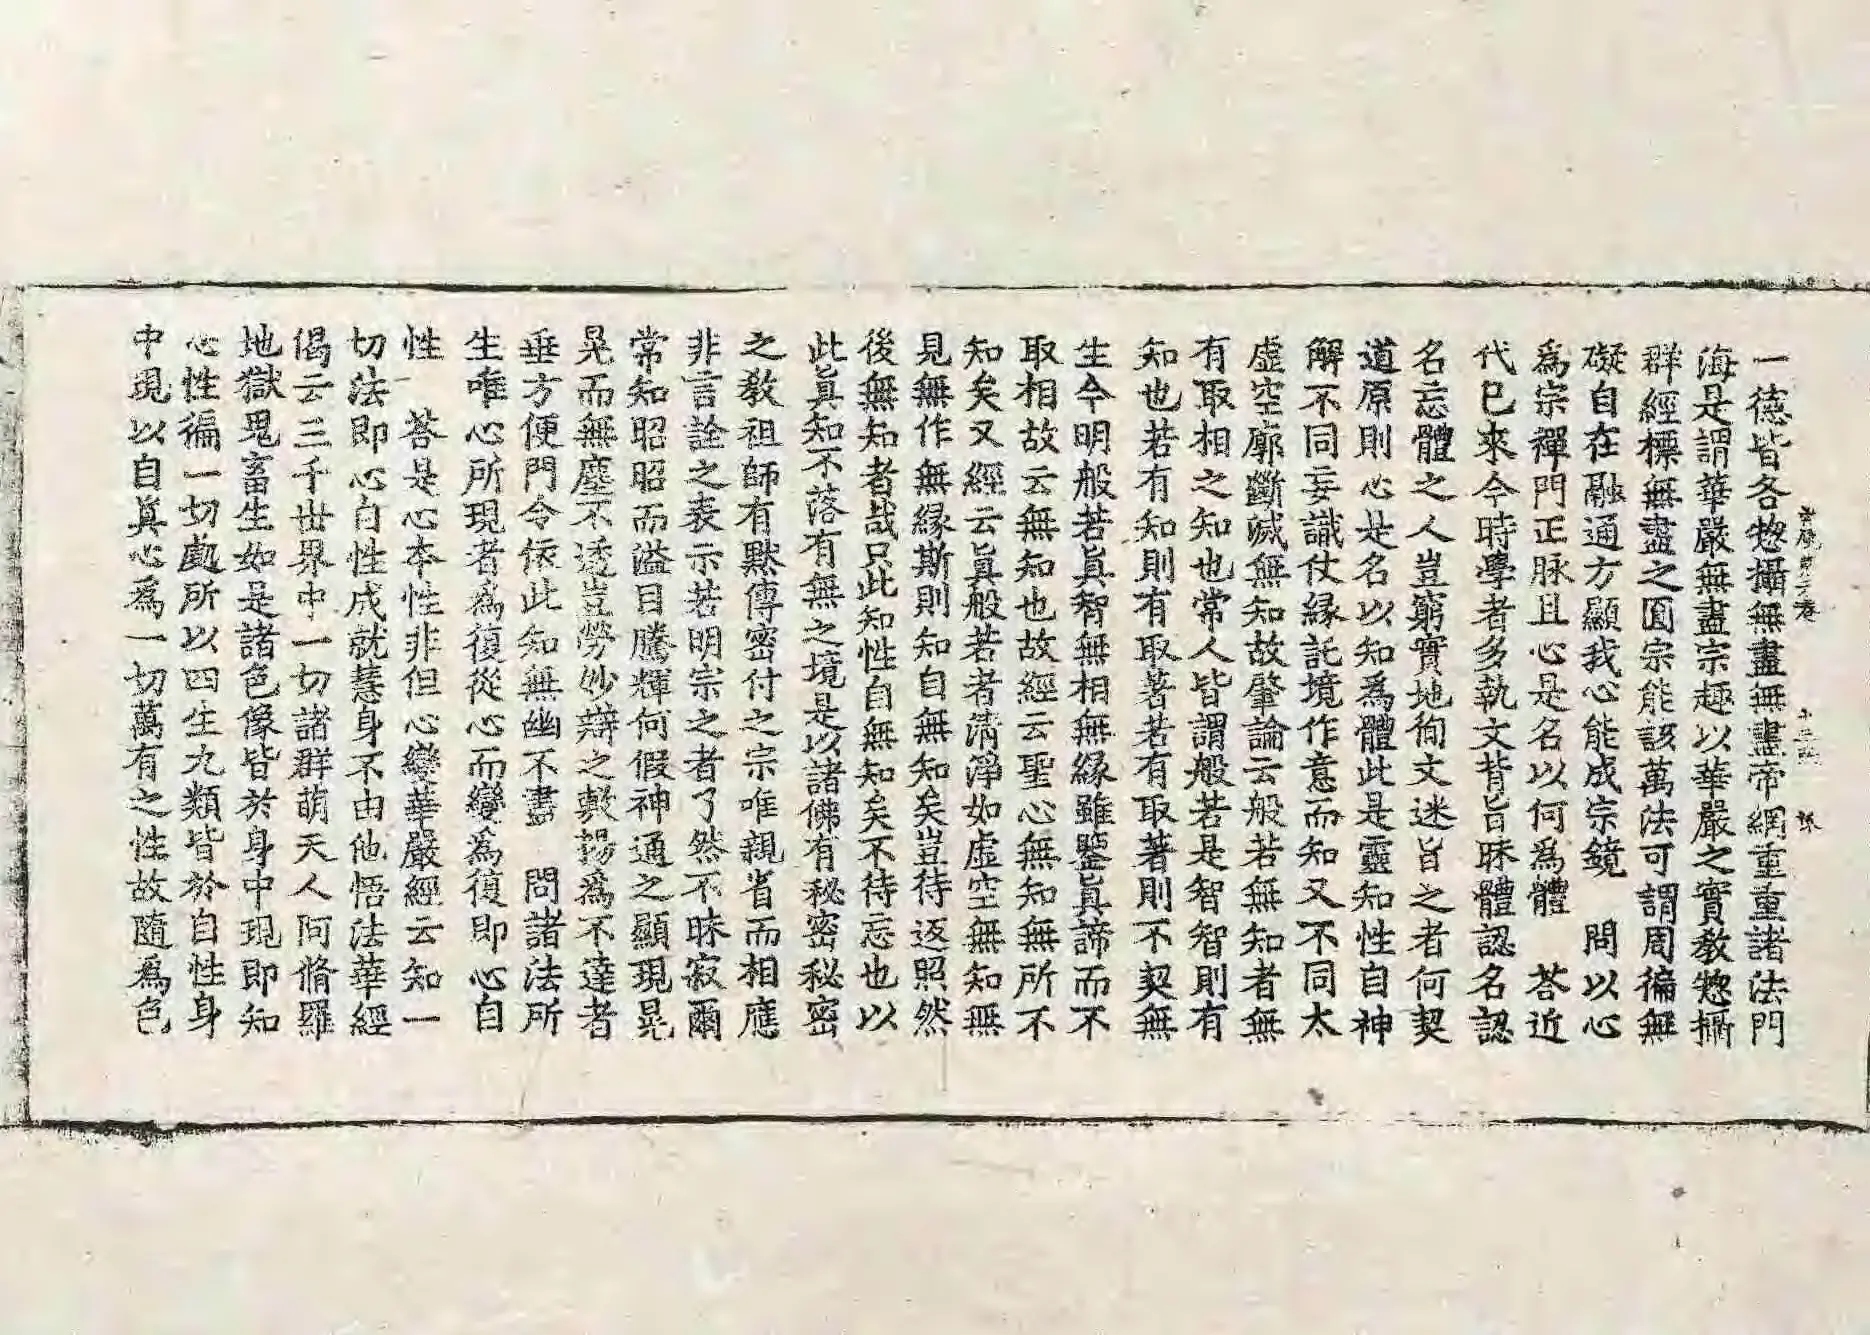 一德皆各惣攝無盡無盡帝網重重諸法門
海是謂華嚴無盡宗趣以華嚴之實教惣攝
群經標無盡之圓宗能該萬法可謂周徧無
礙自在融通方顯我心能成宗鏡 問以心
爲宗禪門正脉且心是名以何爲體 荅近
代已來今時學者多執文背旨昧體認名認
名忘體之人豈窮實地徇文迷旨之者何契
道原則心是名以知爲體此是靈知性自神
解不同妄識仗緣託境作意而知又不同太
虛空廓斷滅無知故肇論云般若無知者無
有取相之知也常人皆謂般若是智智則有
知也若有知則有取著若有取著則不契無
生今明般若眞智無相無緣雖鑒眞諦而不
取相故云無知也故經云聖心無知無所不
知矣又經云眞般若者清淨如虛空無知無
見無作無緣斯則知自無知矣豈待返照然
後無知者哉只此知性自無知矣不待忘也以
此眞知不落有無之境是以諸佛有秘密秘密
之教祖師有默傳密付之宗唯親省而相應
非言詮之表示若明宗之者了然不昧寂爾
常知昭昭而溢目騰輝何假神通之顯現晃
晃而無塵不透豈勞妙辯之敷揚爲不達者
垂方便門令依此知無幽不盡 問諸法所
生唯心所現者爲復從心而變爲復即心自
性 荅是心本性非但心變華嚴經云知一
切法即心自性成就慧身不由他悟法華經
偈云三千世界中一切諸群萌天人阿脩羅
地獄鬼畜生如是諸色像皆於身中現即知
心性徧一切處所以四生九類皆於自性身
中現以自眞心爲一切萬有之性故隨爲色